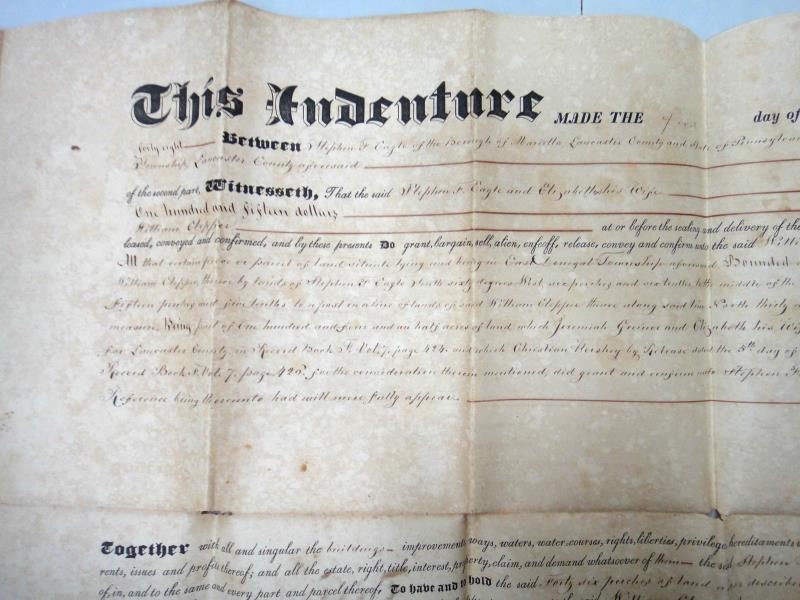 This Indenture MADE THE day of
forty eight Between Stephen F. Eagle of the Borough of Marietta Lancaster County and State of Pennsylvan
Township Lancaster County aforesaid
of the second part, Witnesseth, That the said Stephen F. Eagle and Elizabeth his Wife
One hundred and fifteen dollars
William Clepper at or before the sealing and delivery of the
leased, conveyed and confirmed, and by these presents Do grant, bargain, sell, alien, enfeoff, release, convey and confirm unto the said Will
All that certain piece or parcel of land situate lying and being in East Donegal Township aforesaid Bounded
William Clepper thence by lands of Stephen F. Eagle South sixty degrees West, six perches and six tenths middle of the
Fifteen perches and five tenths to a post in a line of lands of said William Clepper thence along said line North thirty
measure. Being part of One hundred and four and an half acres of land which Jeremiah Greiner and Elizabeth his Wi
for Lancaster County, in Record Book Vol. 7, page 424. and which Christian Hershey by Release dated the 5th day of
Record Book Vol. 7, page 425. for the consideration therein mentioned, did grant and confirm unto Stephen F
Reference being thereunto had will more fully appear.
Together with all and singular the buildings improvements ways, waters, water-courses, rights, liberties, privileges hereditaments
rents, issues and profits thereof; and all the estate, right, title, interest, property, claim, and demand whatsoever of them the said Stephen
of, in, and to the same and every part and parcel thereof, To have and to hold the said Forty six perches of land described
said William